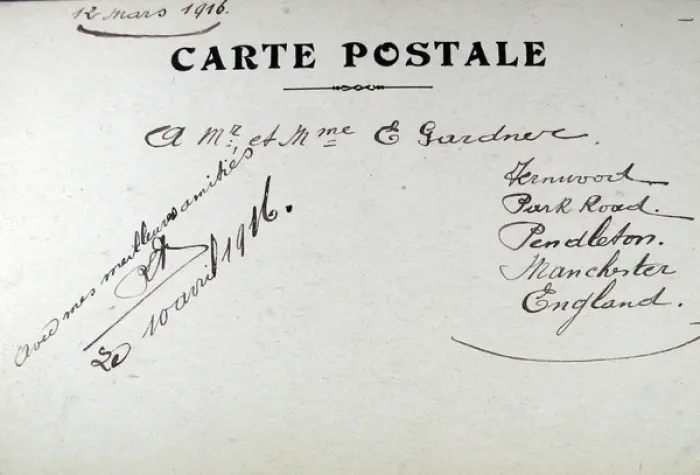 12 mars 1916.
CARTE POSTALE
A Mr. et Mme E Gardner.
Park Road.
Pendleton.
Manchester
England.
avec mes meilleures amitiés
Le 10 avril 1916.